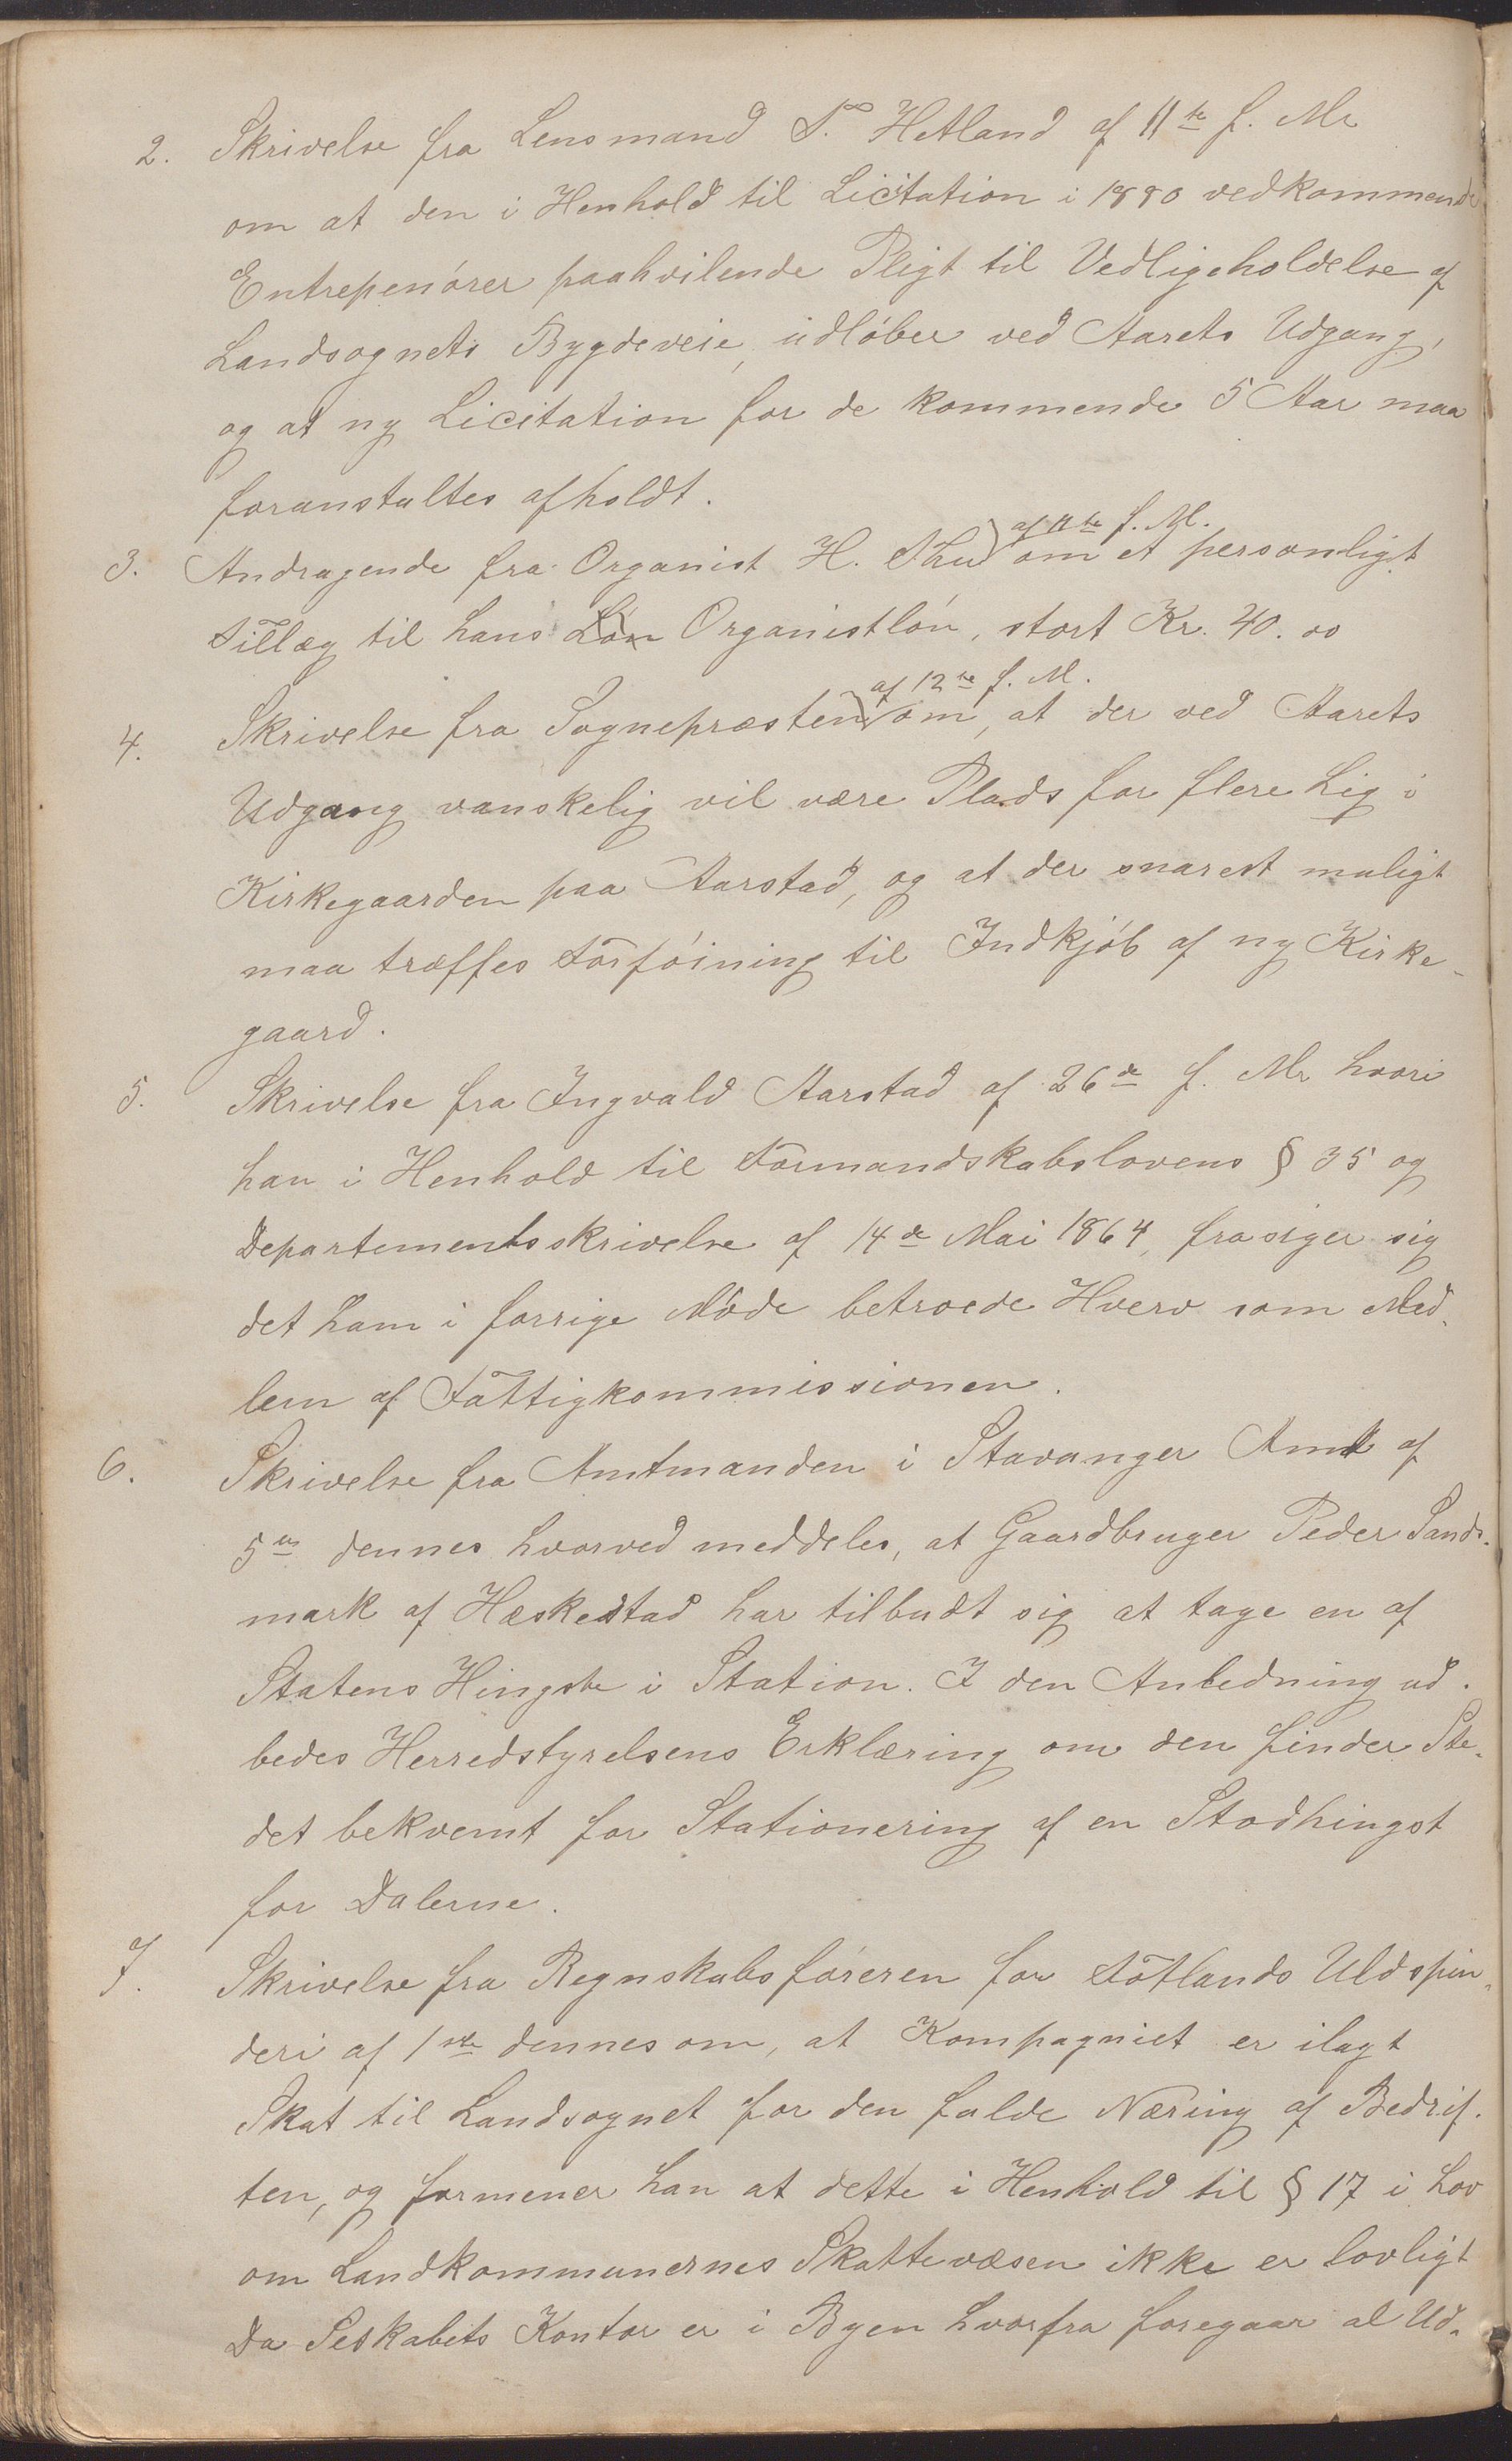 2. Skrivelse fra Lensmand T. Hetland af 11te f. M.
om at den i Henhold til Licitation i 1880 vedkommende
Entrepenører paahvilende Pligt til Vedligeholdelse af
Landsognets Bygdeveie, udløber ved Aarets Udgang,
og at ny Licitation for de kommende 5 Aar maa
foranstaltes afholdt.
af 11te f. M.
3. Andragende fra Organist H. Thu om et personligt
Tillæg til hans Løn Organistløn, stort Kr. 40.00
af 12te f. M.
4. Skrivelse fra Sognepræsten om, at der ved Aarets
Udgang vanskelig vil være Plads for flere Lig i
Kirkegaarden paa Aarstad, og at der snarest muligt
maa træffes Forføining til Indkjøb af ny Kirke-
gaard.
5. Skrivelse fra Ingvald Aarstad af 26de f. M. hvori
han i Henhold til Formandskabslovens § 35 og
Departementsskrivelse af 14de Mai 1864, frasiger sig
det ham i forrige Møde betroede Hverv som Med-
lem af Fattigkommissionen.
6. Skrivelse fra Amtmanden i Stavanger Amt af
5te dennes hvorved meddeles, at Gaardbruger Peder Sands-
mark af Heskestad har tilbudt sig at tage en af
Statens Hingste i Station. I den Anledning ud-
bedes Herredstyrelsens Erklæring om den finder Ste-
det bekvemt for Stationering af en Stodhingst
for Dalerne.
7. Skrivelse fra Regnskabsføreren for Fotlands Uldspin-
deri af 1ste dennes om, at Kompagniet er ilagt
Skat til Landsognet for den fulde Næring af Bedrif-
ten, og formener han at dette i Henhold til § 17 i Lov
om Landkommunernes Skattevæsen ikke er lovligt
Da Selskabets Kontor er i Byen hvorfra foregaar al Ud-